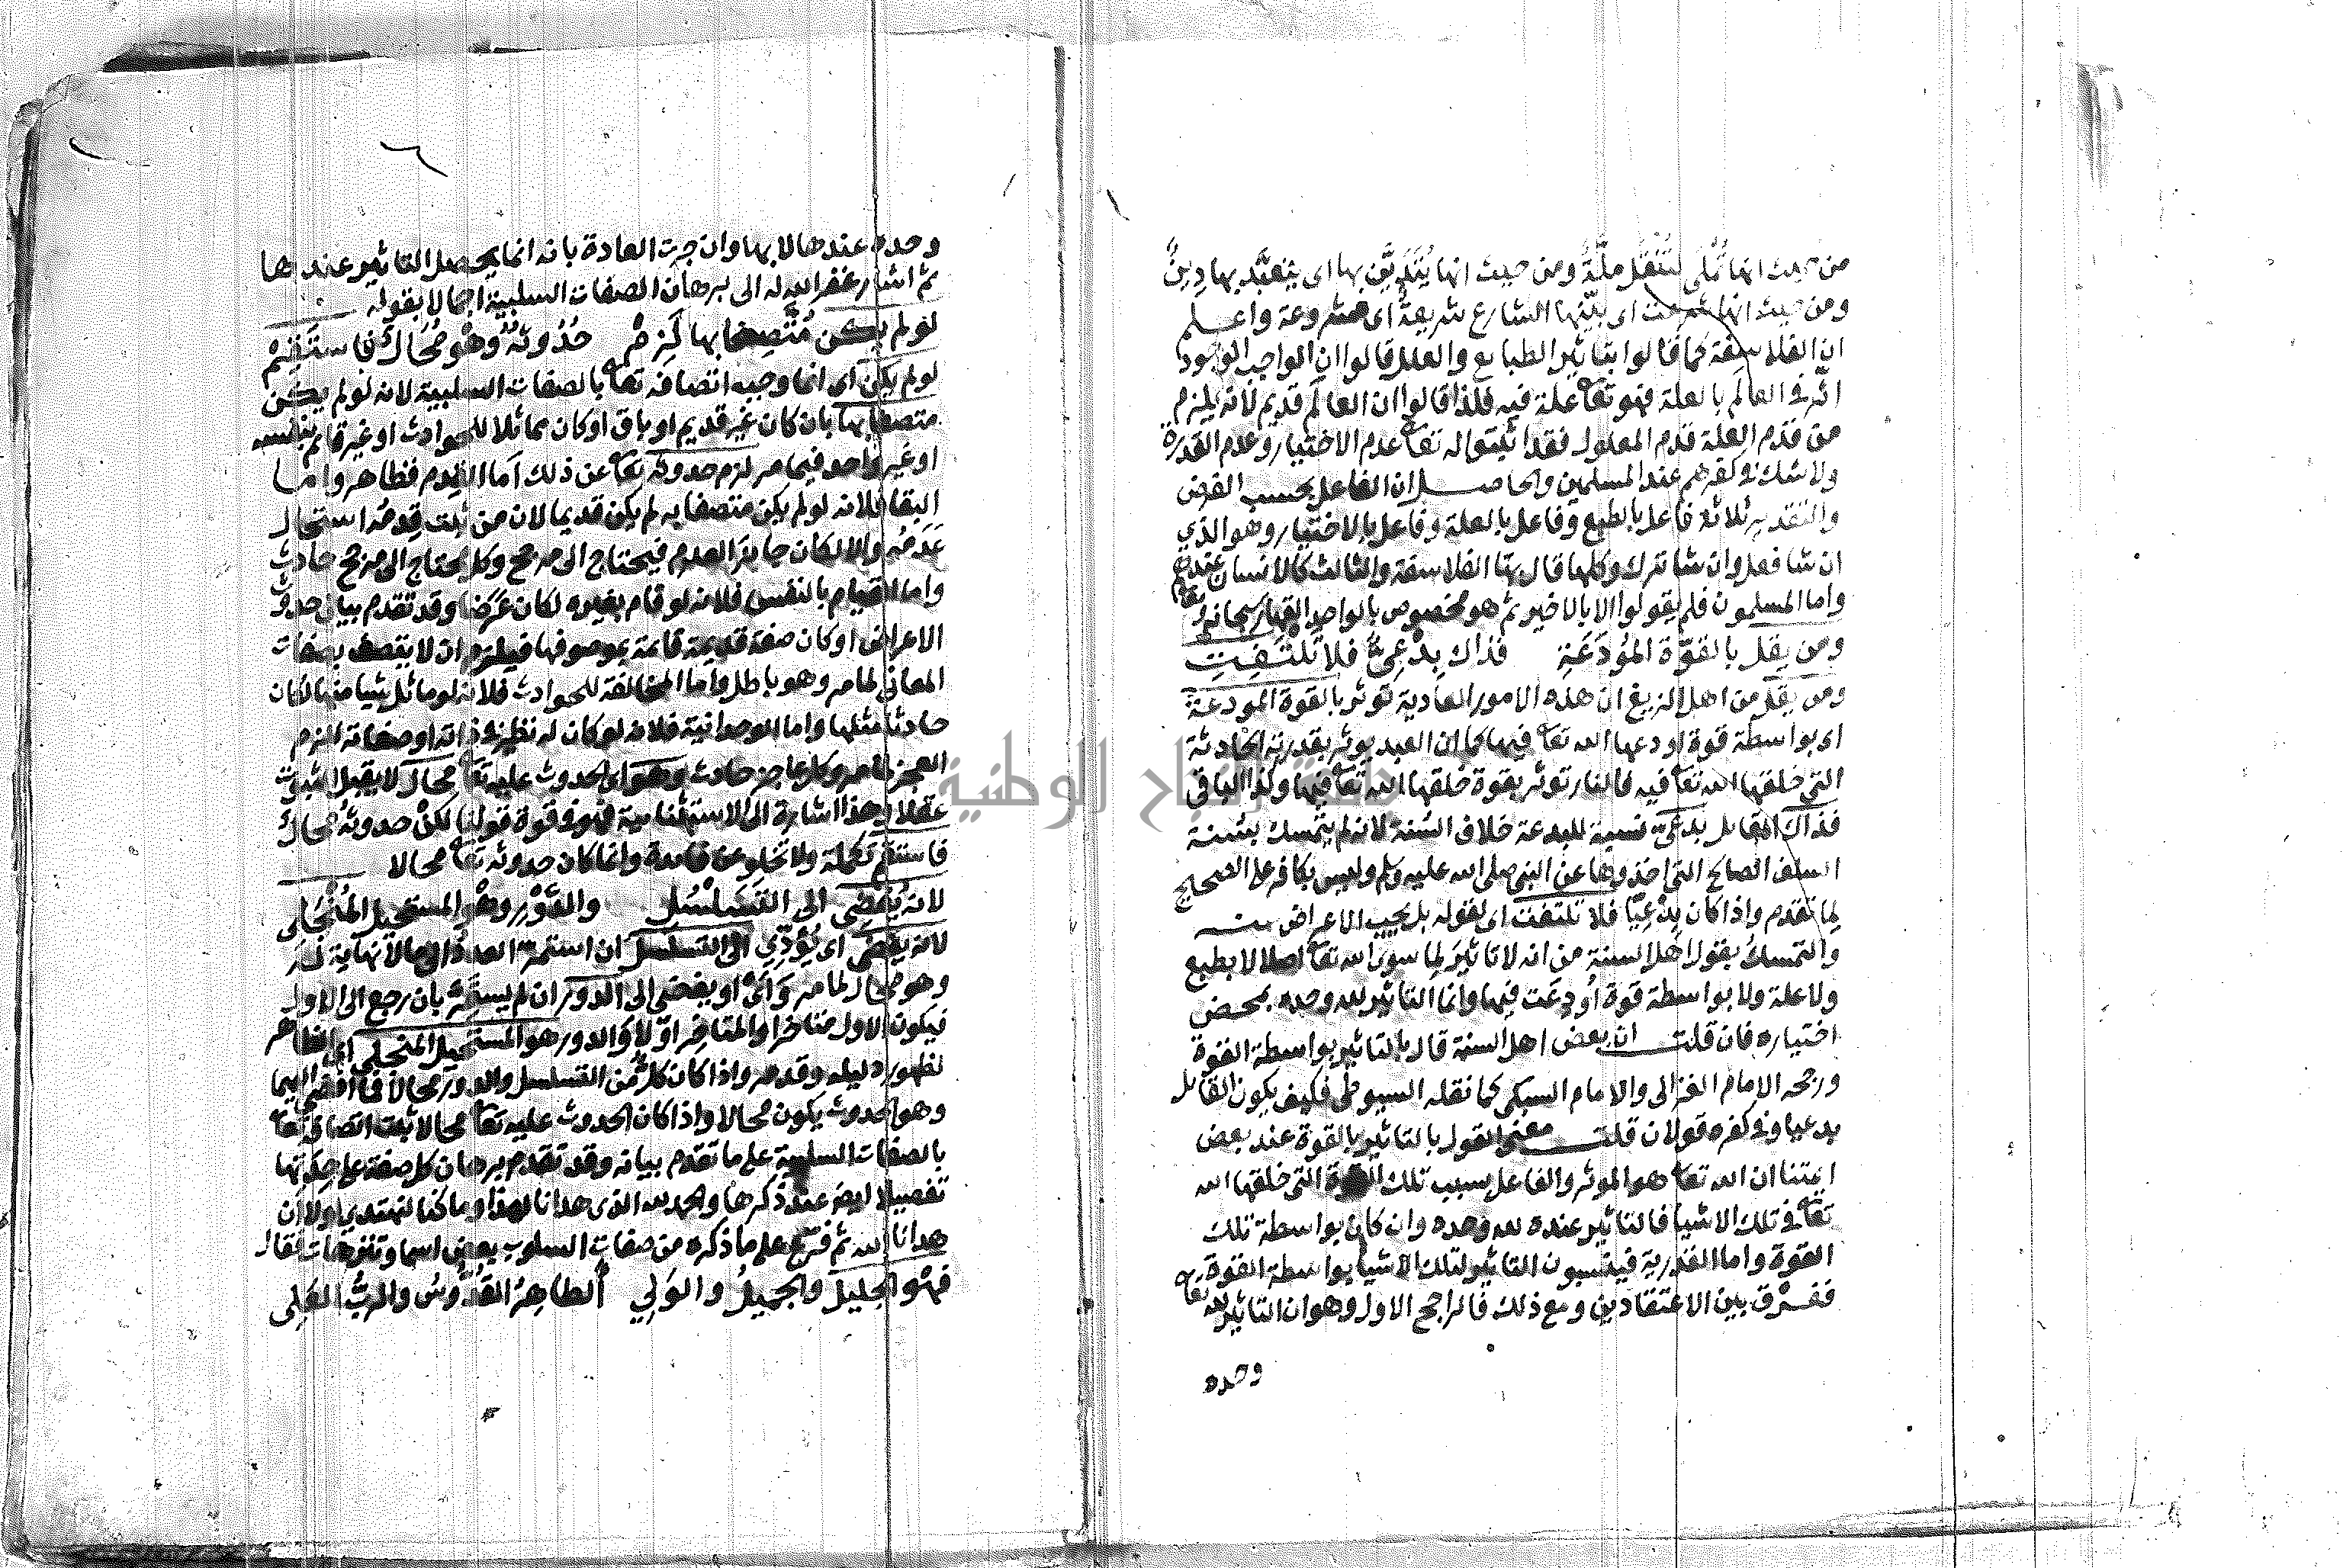 من حيث انها تُملَى لتُنْقَل مِلّةٌ ومن حيث انها يُتَدَيَّن بها اى يتعبّد بها دِينٌ
ومن حيث انها شرعت اى بيّنها الشارع شريعةٌ اى مشروعة واعلم
ان الفلاسفة كما قالوا بتاثير الطبايع والعلل قالوا ان الواجب الوجود
اثّر فى العالم بالعلة فهو تعا علة فيه فلذا قالوا ان العالم قديم لانه يلزم
من قدم العلة قدم المعلول فقد اثبتوا له تعا عدم الاختيار وعدم القدرة
ولا شك فى كفرهم عند المسلمين والحاصل ان الفاعل بحسب الفرض
والتقدير ثلاثة فاعل بالطبع وفاعل بالعلة وفاعل بالاختيار وهو الذي
ان شا فعل وان شا ترك وكلها قال بها الفلاسفة والثالث كالانسان عندهم
واما المسلمون فلم يقولوا الا بالاخير ثم هو مخصوص بالواحد القهار سبحانه وتعا
ومن يقل بالقوّة المُودَعَةِ فذاك بِدْعِيٌّ فلا تَلْتَفِتِ
ومن يقل من اهل الزيغ ان هذه الامور العادية توثر بالقوة المودعة
اى بواسطة قوة اودعها الله تعا فيها كما ان العبد يوثر بقدرته الحادثة
التى خلقها الله تعا فيه فالنار توثر بقوة خلقها الله تعا فيها وكذا الباقى
فذاك القايل بدعىّ نسبة للبدعة خلاف السُنة لانه لم يتمسك بسُنة
السلف الصالح التى اخذوها عن النبى صلى الله عليه وسلم وليس بكافر على الصحيح
لِما تقدم واذا كان بِدْعِيًّا فلا تلتفت اى لقوله بل يجب الاعراض عنه
والتمسكُ بقول اهل السنة من انه لا تاثيرَ لِما سوى الله تعا اصلا لا بطبع
ولا علة ولا بواسطة قوة أُودِعَت فيها وانما التاثير لله وحده بمحض
اختياره فان قلت ان بعض اهل السنة قال بالتاثير بواسطة القوة
ورجحه الامام الغزالى والامام السبكى كما نقله السيوطى فكيف يكون القايل
بدعيا وفى كفره قولان قلت معنى القول بالتاثير بالقوة عند بعض
ايمتنا ان الله تعا هو الموثر والفاعل بسبب تلك القوة التى خلقها الله
تعا فى تلك الاشيا فالتاثير عنده لله وحده وان كان بواسطة تلك
القوة واما القدرية فينسبون التاثير لتلك الاشيا بواسطة القوة
ففرق بين الاعتقادين ومع ذلك فالراجح الاول وهو ان التاثير لله تعا
وحده
٦
وحده عندها لا بها وان جرت العادة بانه انما يحصل التاثير عندها
ثم اشار غفر الله له الى برهان الصفات السلبية اجمالا بقوله
لو لم يكن مُتَّصِفا بها لَزِمْ حُدُوثُهُ وَهْوَ مُحَالٌ فاستَقِمْ
لو لم يكن اى انما وجب اتصافه تعا بالصفات السلبية لانه لو لم يكن
متصفا بها بان كان غير قديم او باق او كان مماثلا للحوادث او غير قايم بنفسه
او غير واحد فيما مر لزم حدوثه تعا عن ذلك اما القدم فظاهر واما
البقا فلانه لو لم يكن متصفا به لم يكن قديما لان من ثبت قِدمُه استحال
عَدَمُه والا لكان جايز العدم فيحتاج الى مرجح وكل محتاج الى مرجح حادث
واما القيام بالنفس فلانه لو قام بغيره لكان عَرَضا وقد تقدم بيان حدوث
الاعراض او كان صفة قديمة قايمة بموصوفها فيلزم ان لا يتصف بصفات
المعانى لما مر وهو باطل واما المخالفة للحوادث فلانه لو ماثل شيا منها لكان
حادثا مثلها واما الوحدانية فلانه لو كان له نظير فى ذاته او صفاته للزم
العجز لما مر وكل عاجز حادث وهو اى الحدوث عليه تعا محال لا يقبل الثبوت
عقلا وهذا اشارة الى الاستثنائية فهو فى قوة قولنا لكنْ حدوثُه محال
فاستقم تكملة ولا تخلو من فايدة وانما كان حدوثه تعا محالا
لانه يُفْضِى الى التَسَلْسُلِ والدَّوْرِ وهْو المستحيل المُنْجَلى
لانه يفضى اى يُؤَدِّي الى التسلسل ان استمرّ العددُ الى ما لا نهاية له
وهو محال لما مر وَاىْ او يفضى الى الدور ان لم يستمِرّ بان رجع الى الاول
فيكون الاول متاخرا والمتاخر اوّلًا والدور هو المستحيل المنجلى اى الظاهر
لظهور دليله وقد مر واذا كان كلٌّ من التسلسل والدور محالا فما افضى اليهما
وهو الحدوث يكون محالا واذا كان الحدوث عليه تعا محالا ثبت اتصافه تعا
بالصفات السلبية على ما تقدم بيانه وقد تقدم برهان كل صفة على حِدَتها
تفصيلا ايضا عند ذكرها والحمد لله الذى هدانا لهذا وما كنا لنهتدي لولا ان
هدانا الله ثم فرّع على ما ذكره من صفات السلوب بعض اسما وتنزيهات فقال
فهْو الجليلُ والجميلُ والوَلِي الطاهِرُ القُدُّوسُ والربُّ العَلِى